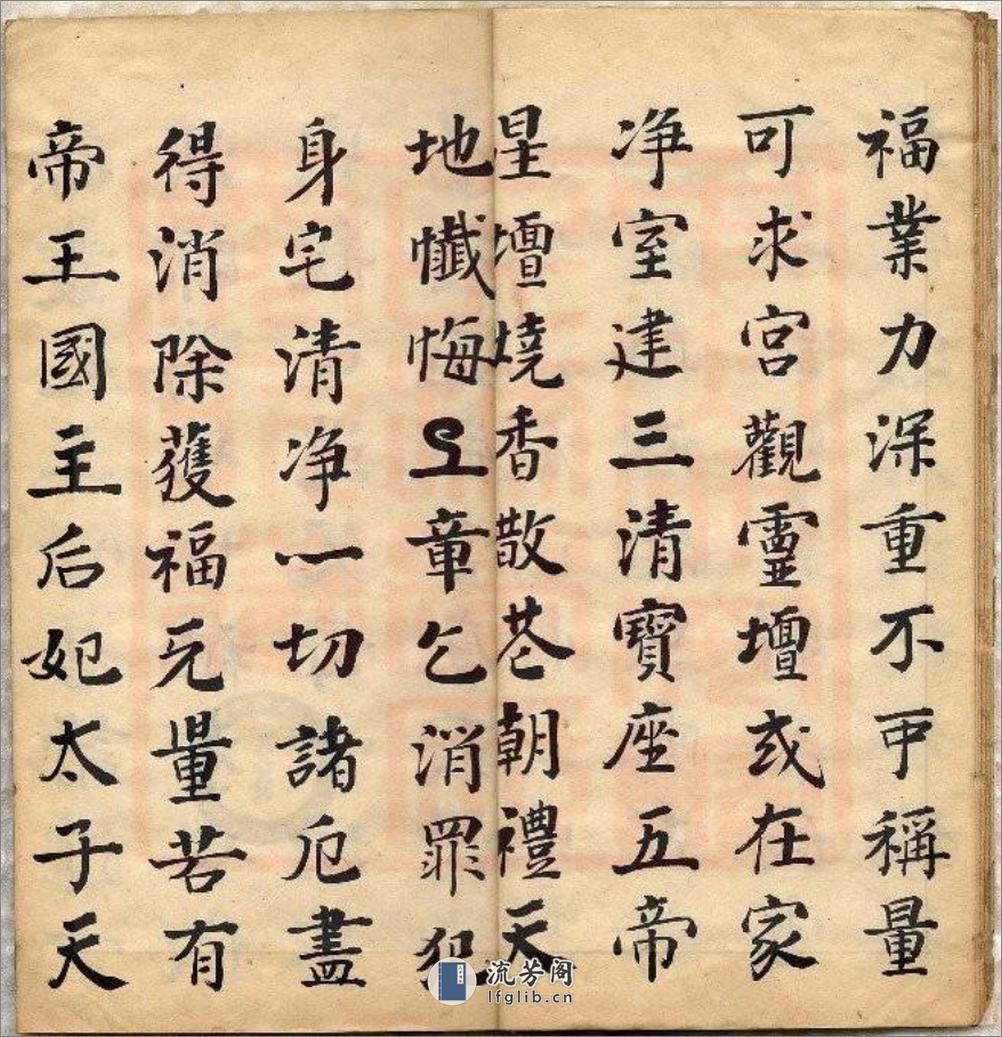 福業力深重不可稱量
可求宮觀靈壇或在家
净室建三清寶座五帝
星壇燒香散花朝禮天
地懺悔上章乞消罪犯
身宅清净一切諸厄盡
得消除獲福无量若有
帝王國主后妃太子天
流芳阁
lfglib.cn